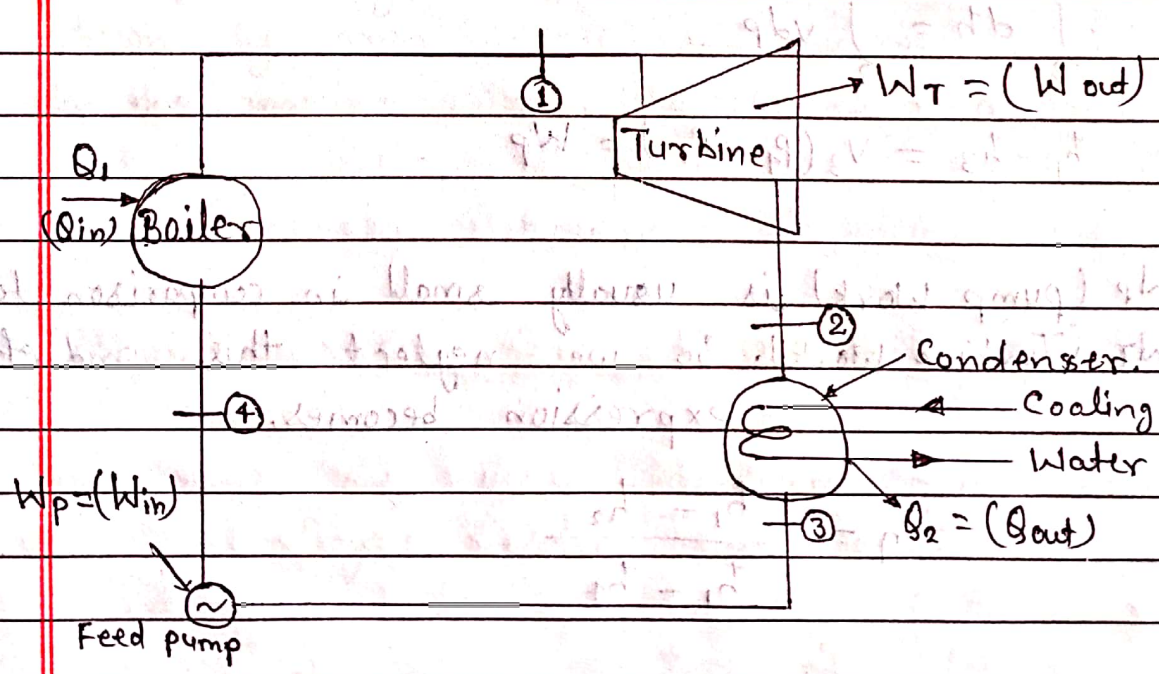 ①
W_T = (W out)
Turbine
Q₁
(Qin)
Boiler
②
Condenser.
Cooling
Water
④
Wp=(Win)
③
Q₂ = (Qout)
~
Feed pump